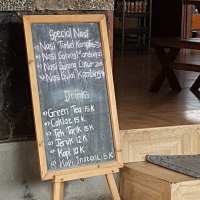 Special Nasi
Nasi Timbel Komplit
Nasi Goreng
Nasi Goreng Cikur
Nasi Gudi Kambing
Drinks
Green Tea 15 K
Coklat 15 K
Teh Tarik 15 K
Jeruk 12 K
Kopi 10 K
Kopi Instant 5 K